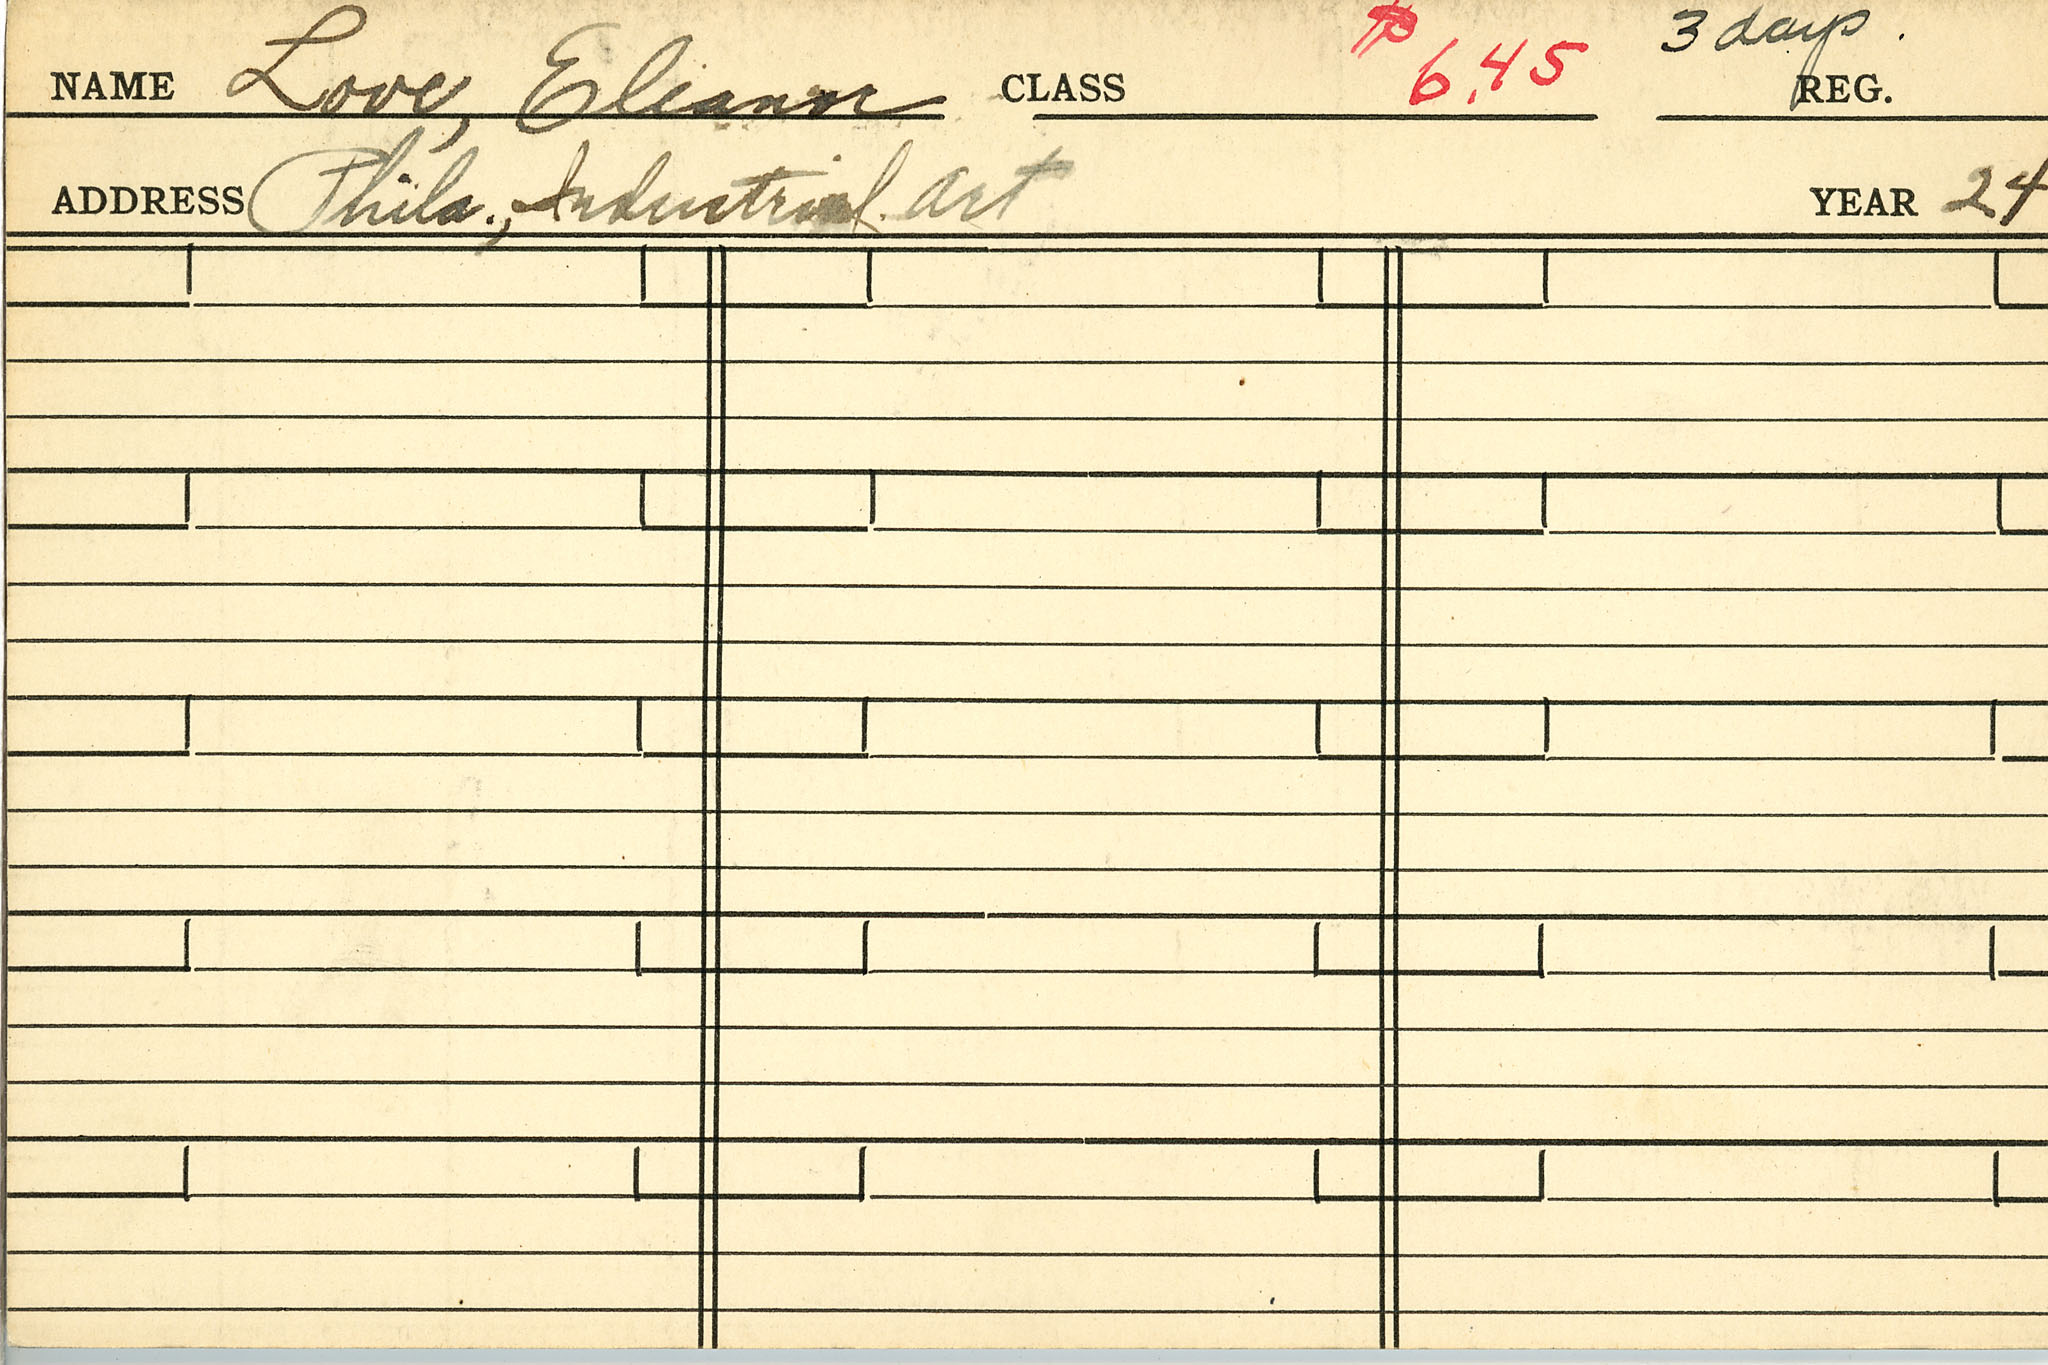 NAME Love, Eleanor CLASS $6.45 3 days. REG.
ADDRESS Phila., Industrial Art YEAR 24